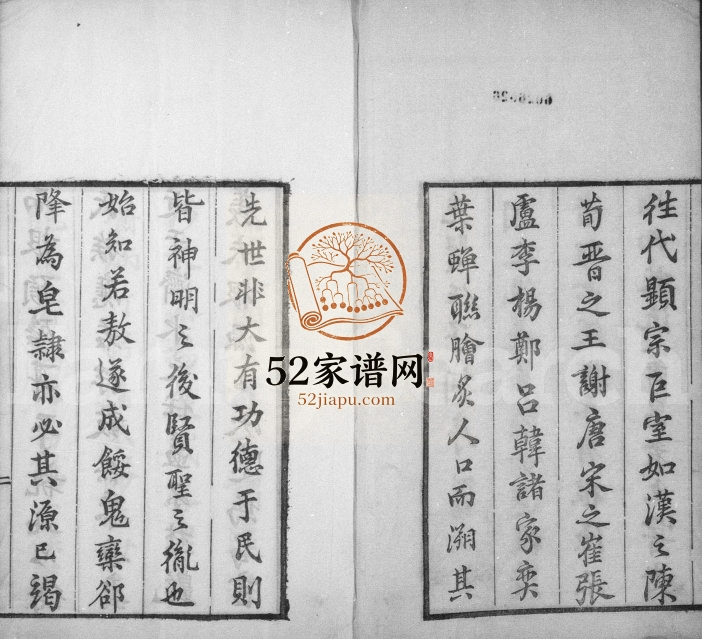 往代顯宗巨室如漢之陳
荀晋之王謝唐宋之崔張
盧李楊鄭呂韓諸家奕
葉蟬聯膾炙人口而溯其
先世非大有功德于民則
皆神明之後賢聖之胤也
始知若敖遂成餒鬼欒郤
降為皂隸亦必其源已竭
二
52家谱网
52jiapu.com